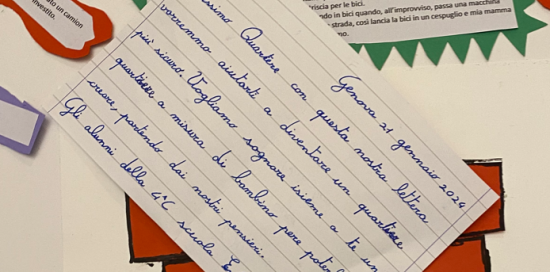 to un camion
investito.
riscia per le bici.
ndo in bici quando, all'improvviso, passa una macchina
strada, così lancia la bici in un cespuglio e mia mamma
no.
Genova 21 gennaio 2024
ssimo Quartiere con questa nostra lettera
vorremmo aiutarti a diventare un quartiere
più sicuro. Vogliamo sognare insieme a te un
quartiere a misura di bambino pere poter
creare, partendo dai nostri pensieri.
Gli alunni della 4°C scuola